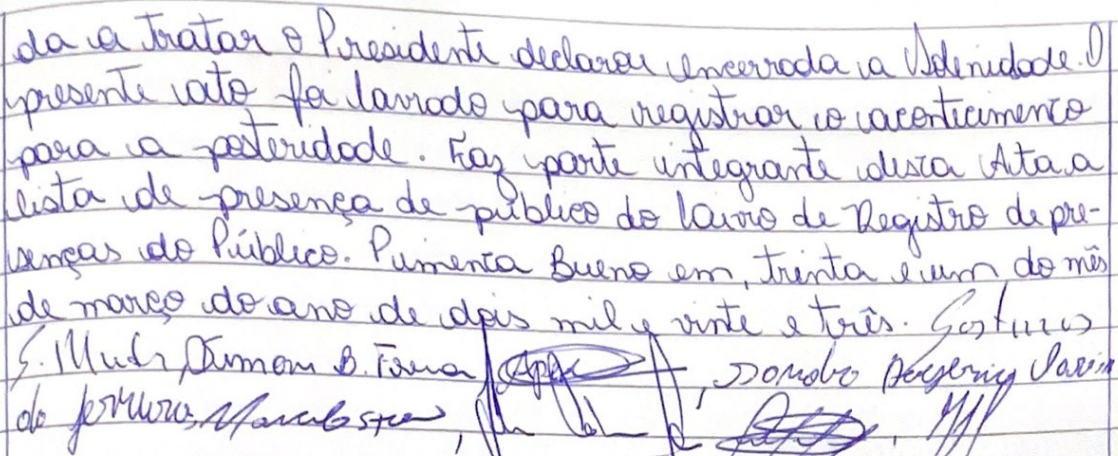 da a tratar o Presidente declarou encerrada a Solenidade. O
presente ato foi lavrado para registrar o acontecimento
para a posteridade. Faz parte integrante desta Ata a
lista de presença de público do lavro de Registro de pre-
senças do Público. Pimenta Bueno em, trinta e um do mês
de março do ano de dois mil e vinte e três.